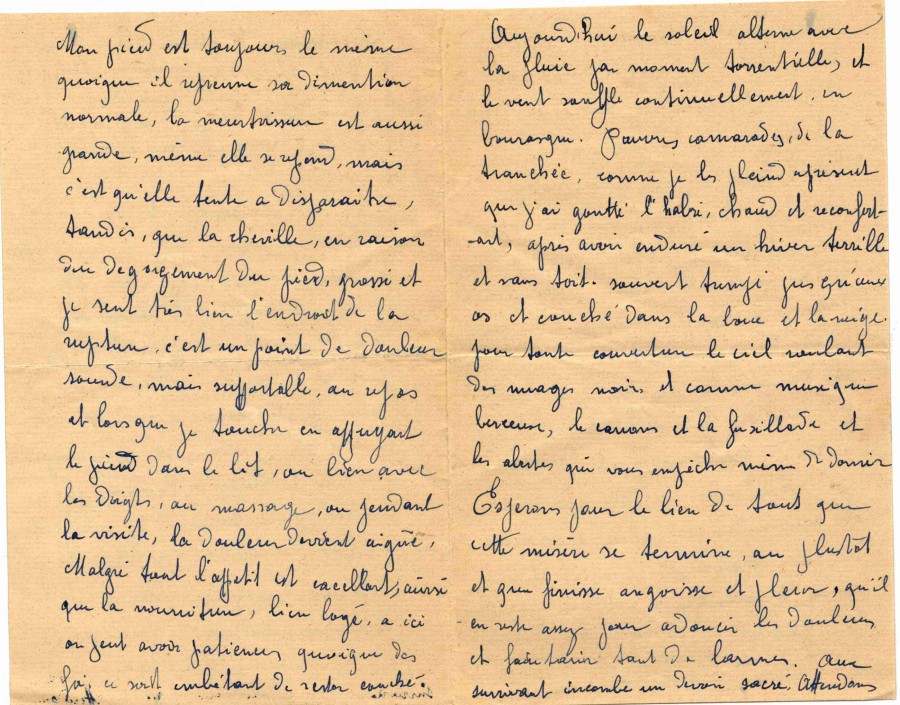 Mon pied est toujours le même
quoique il reprenne sa dimention
normale, la meurtrissure est aussi
grande, même elle se repend, mais
c'est qu'elle tente a disparaitre,
tandis, que la cheville, en raison
du degorgement du pied, grossi et
je sent très bien l'endroit de la
rupture, c'est un point de douleur
sourde, mais supportable, au repos
et lorsque je touche en appuyant
le pied dans le lit, ou bien avec
les doigts, au massage, ou pendant
la visite, la douleur devient aiguë,
Malgré tout l'appetit est excellent, aussi
que la nourriture, bien logé, a ici
on peut avoir patience, quoique des
fois ce soit embétant de rester couché.
Aujourd'hui le soleil alterne avec
la pluie par moment torrentielle, et
le vent souffle continuellement, en
bourasque. Pauvres camarades, de la
tranchée, comme je les pleind apresent
que j'ai goutté l'habri, chaud et reconfort-
-ant, après avoir enduré un hiver terrible
et sans toit. souvent trempé jusqu'aux
os et couché dans la boue et la neige.
pour toute couverture le ciel roulant
des nuages noirs et comme musique
berceuse, le canons et la fusillade et
les alertes qui vous empêche même de dormir
Esperons pour le bien de tout que
cette misère se termine, au plustôt
et que finisse angoisse et pleur, qu'il
en reste assez pour adoucir les douleurs
et faire tarir tant de larmes. Aux
survivant incombe un devoir sacré. Attendons